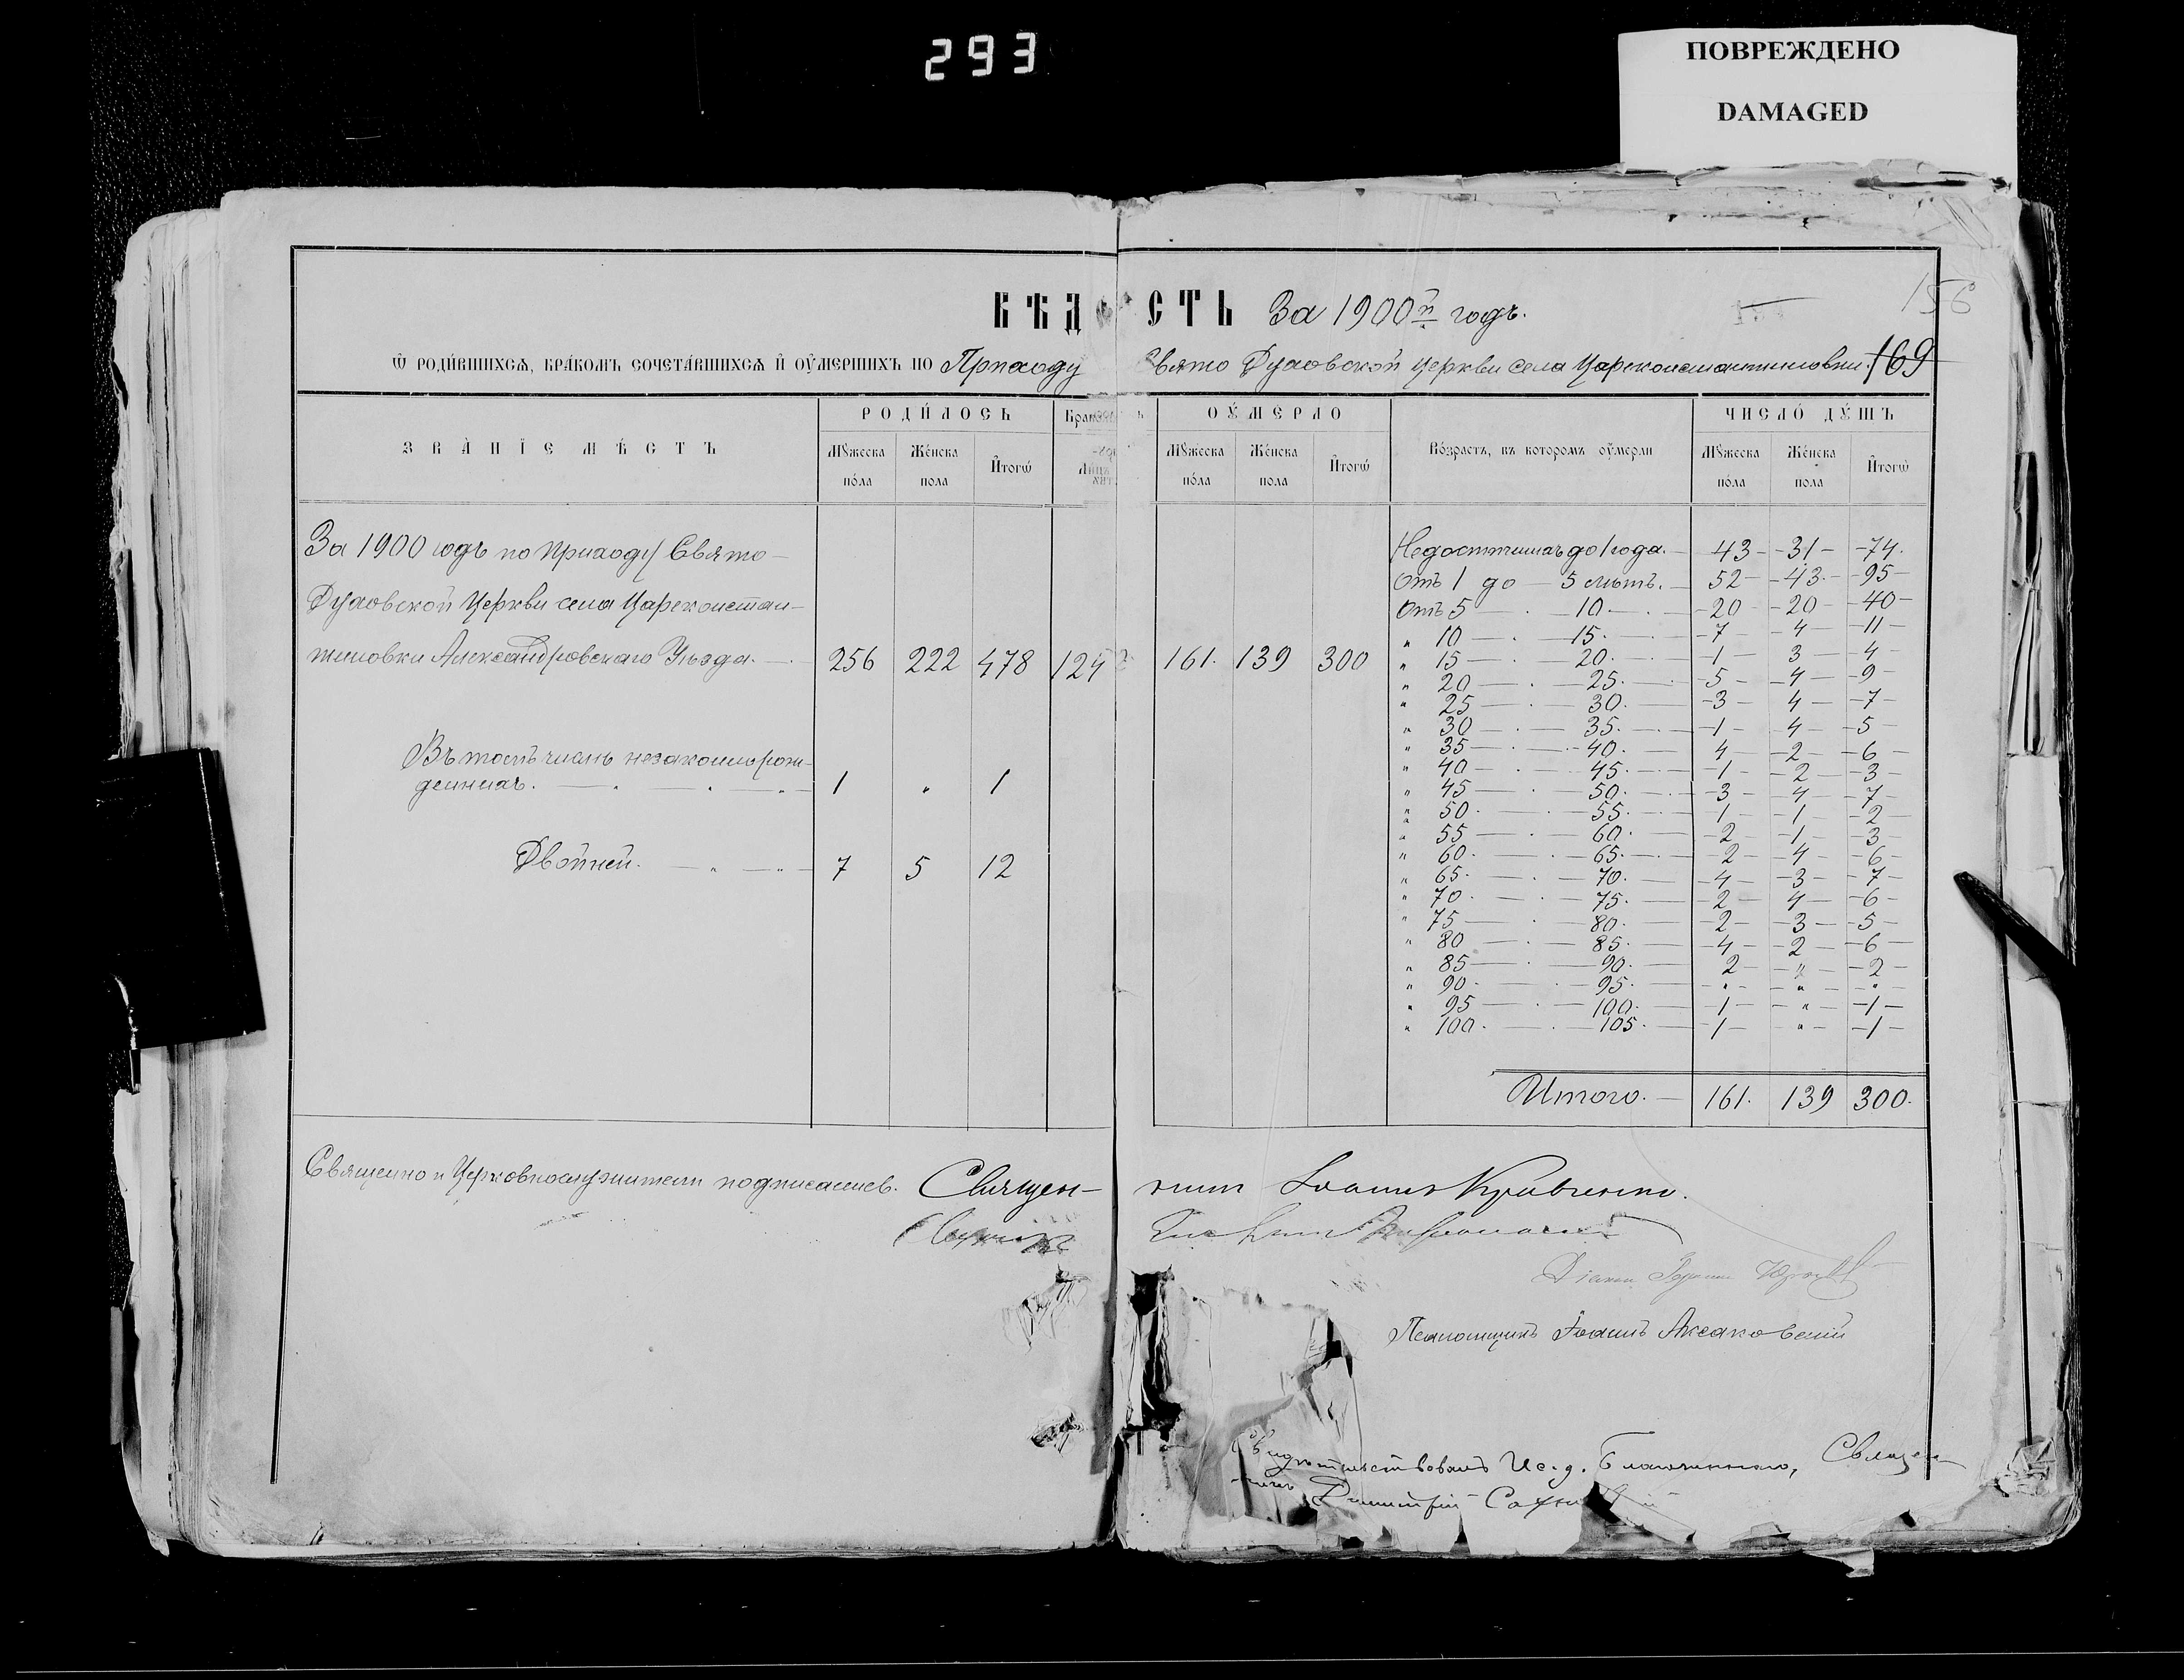 293
ПОВРЕЖДЕНО
DAMAGED
156
ВѢДО СТЬ За 1900й годъ.
Ѡ РОДИ́ВШИХСѦ, БРА́КОМЪ СОЧЕТА́ВШИХСѦ И҆ ОУ҆МЕРШИХЪ ПО Приходу Свято Духовской Церкви села Цареконстантиновки. 169
ЗВА́НЇЕ МѢСТЪ
РОДИ́ЛОСЬ
Мꙋ́жеска по́ла
Же́нска пола
И҆тогѡ̀
ОУ҆́МЕРЛО
Мꙋ́жеска по́ла
Же́нска пола
И҆тогѡ̀
Во́зрастъ, въ которомъ оу҆́мерли
ЧИСЛО́ ДꙊШЪ
Мꙋ́жеска по́ла
Же́нска пола
И҆тогѡ̀
За 1900 годъ по приходу Свято-
Духовской Церкви села Цареконстан-
тиновки Александровскаго Уѣзда. 256 222 478 124 161. 139 300
Въ томъ числѣ незаконнорож-
денныхъ. 1 " 1
Двойней. 7 5 12
Недостигшихъ до 1 года. 43 - 31 - 74.
Отъ 1 до 5 лѣтъ. 52 - 43. - 95
Отъ 5 — 10. 20 - 20 - 40
" 10 — 15. 7 - 4 - 11
" 15 — 20. 1 3 - 4
" 20 — 25. 5 - 4 - 9
" 25 — 30. 3 4 - 7
" 30 — 35. 1 - 4 - 5
" 35 — 40. 4 - 2 - 6
" 40 — 45. 1 - 2 - 3
" 45 — 50. 3 - 4 - 7
" 50. — 55. 1 - 1 - 2
" 55 — 60. 2 - 1 - 3
" 60. — 65. 2 - 4 - 6
" 65. — 70. 4 - 3 - 7
" 70. — 75. 2 - 4 - 6
" 75 — 80. 2 - 3 - 5
" 80 — 85. 4 - 2 - 6
" 85 — 90. 2 - " - 2
" 90. — 95. " - " - "
" 95 — 100. 1 - " - 1
" 100. — 105. 1 - " - 1
Итого. 161. 139 300.
Священно и Церковнослужители подписались. Священ-
никъ Іоаннъ Кравченко.
Священникъ
Діаконъ
Псаломщикъ Іоаннъ Аксаковскій
Свидѣтельствовалъ Ис. д. Благочиннаго, Священ-
никъ Димитрій